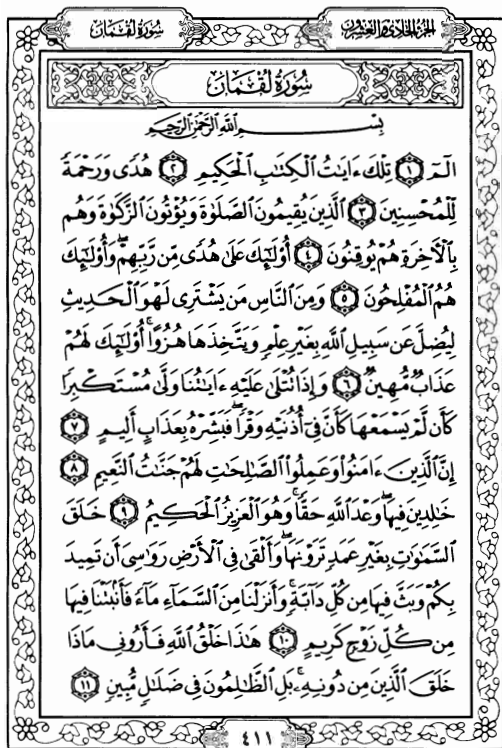 سُورَةُ لُقْمَان الجُزْءُ الحَادِي وَالعِشْرُونَ
سُورَةُ لُقْمَان
بِسْمِ اللَّهِ الرَّحْمَٰنِ الرَّحِيمِ
الٓمٓ ١ تِلْكَ ءَايَٰتُ ٱلْكِتَٰبِ ٱلْحَكِيمِ ٢ هُدًى وَرَحْمَةً
لِّلْمُحْسِنِينَ ٣ ٱلَّذِينَ يُقِيمُونَ ٱلصَّلَوٰةَ وَيُؤْتُونَ ٱلزَّكَوٰةَ وَهُم
بِٱلْأٓخِرَةِ هُمْ يُوقِنُونَ ٤ أُو۟لَٰٓئِكَ عَلَىٰ هُدًى مِّن رَّبِّهِمْ ۖ وَأُو۟لَٰٓئِكَ
هُمُ ٱلْمُفْلِحُونَ ٥ وَمِنَ ٱلنَّاسِ مَن يَشْتَرِى لَهْوَ ٱلْحَدِيثِ
لِيُضِلَّ عَن سَبِيلِ ٱللَّهِ بِغَيْرِ عِلْمٍ وَيَتَّخِذَهَا هُزُوًا ۚ أُو۟لَٰٓئِكَ لَهُمْ
عَذَابٌ مُّهِينٌ ٦ وَإِذَا تُتْلَىٰ عَلَيْهِ ءَايَٰتُنَا وَلَّىٰ مُسْتَكْبِرًا
كَأَن لَّمْ يَسْمَعْهَا كَأَنَّ فِىٓ أُذُنَيْهِ وَقْرًا ۖ فَبَشِّرْهُ بِعَذَابٍ أَلِيمٍ ٧
إِنَّ ٱلَّذِينَ ءَامَنُوا۟ وَعَمِلُوا۟ ٱلصَّٰلِحَٰتِ لَهُمْ جَنَّٰتُ ٱلنَّعِيمِ ٨
خَٰلِدِينَ فِيهَا ۖ وَعْدَ ٱللَّهِ حَقًّا ۚ وَهُوَ ٱلْعَزِيزُ ٱلْحَكِيمُ ٩ خَلَقَ
ٱلسَّمَٰوَٰتِ بِغَيْرِ عَمَدٍ تَرَوْنَهَا ۖ وَأَلْقَىٰ فِى ٱلْأَرْضِ رَوَٰسِىَ أَن تَمِيدَ
بِكُمْ وَبَثَّ فِيهَا مِن كُلِّ دَآبَّةٍ ۚ وَأَنزَلْنَا مِنَ ٱلسَّمَآءِ مَآءً فَأَنۢبَتْنَا فِيهَا
مِن كُلِّ زَوْجٍ كَرِيمٍ ١٠ هَٰذَا خَلْقُ ٱللَّهِ فَأَرُونِى مَاذَا
خَلَقَ ٱلَّذِينَ مِن دُونِهِۦ ۚ بَلِ ٱلظَّٰلِمُونَ فِى ضَلَٰلٍ مُّبِينٍ ١١
٤١١